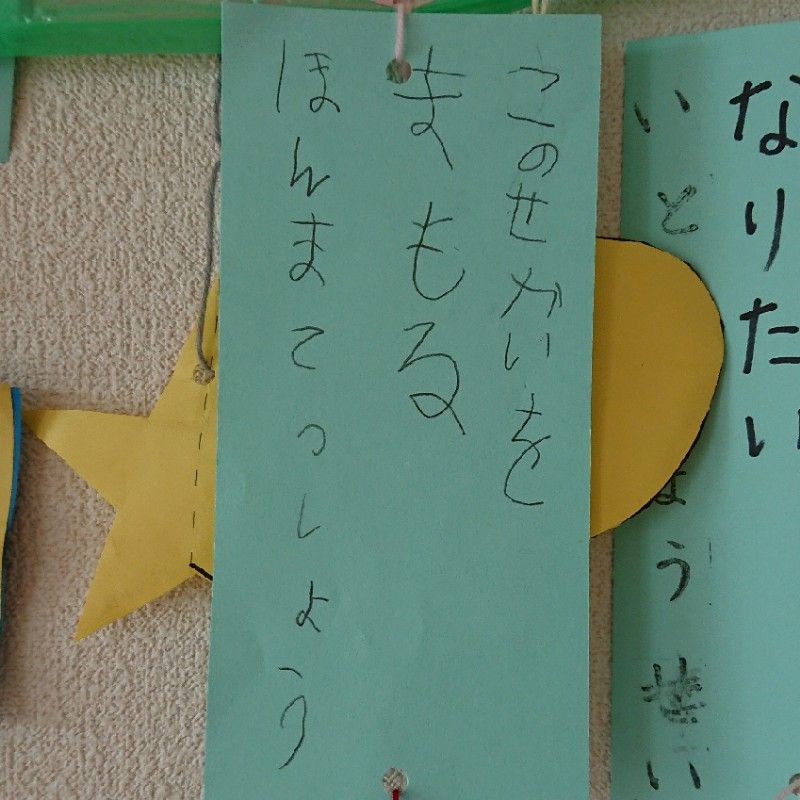 なりたい
いと ょう い
このせかいを
まもる
ほんまてっしょう